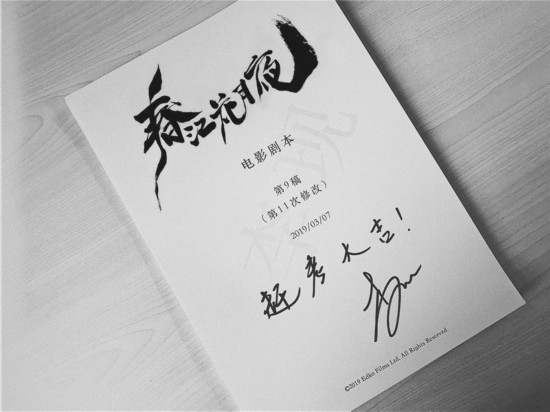 春江花月夜
电影剧本
第9稿
(第11次修改)
2019/03/07
赶考大吉!
©2019 Edko Films Ltd. All Rights Reserved.